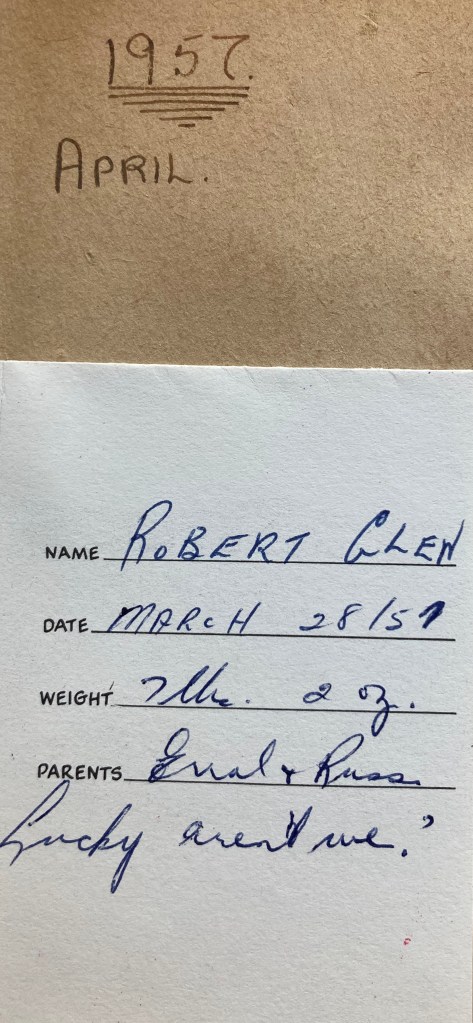 1957.
APRIL.
NAME ROBERT GLEN
DATE MARCH 28/57
WEIGHT 7 lbs. 2 oz.
PARENTS & Russ.
Lucky aren't we?